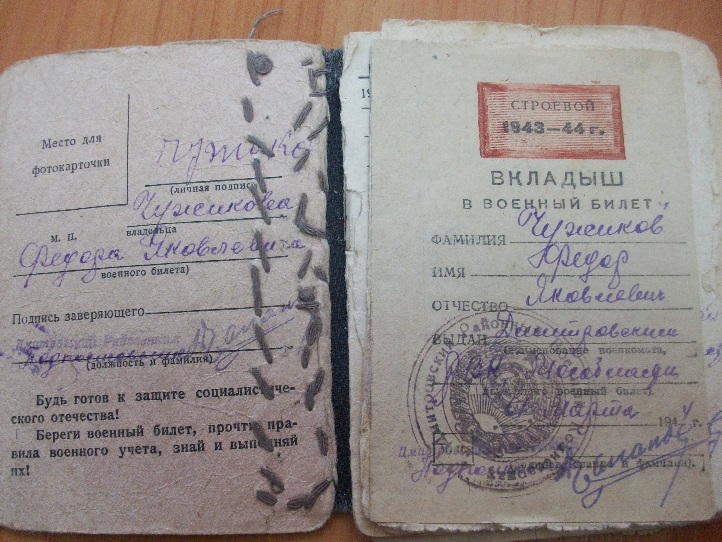 Место для
фотокарточки
(личная подпись
Чужикова
М. П.
владельца
Федора Яковлевича
военного билета)
Подпись заверяющего
(должность и фамилия)
Будь готов к защите социалистического
отечества!
Береги военный билет, прочти правила
военного учета, знай и выполняй
их!
СТРОЕВОЙ
1943—44 г.
ВКЛАДЫШ
В ВОЕННЫЙ БИЛЕТ
ФАМИЛИЯ Чужиков
ИМЯ Федор
ОТЧЕСТВО Яковлевич
ВЫДАН Дмитровским
(наименование военкомата,
РВК Мособласти
военный билет)
Марта 1944 г.